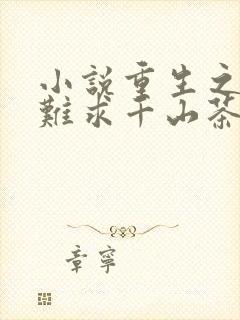 小說重生之
難求千山茶
章寧